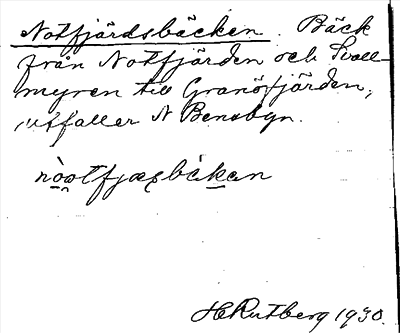 Notfjärdsbäcken. Bäck
från Notfjärden och Svall-
myren till Granöfjärden,
utfaller N Bensbyn.
nòotfjæṣbákan
H Rutberg 1930.